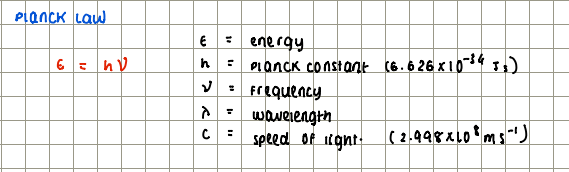 PLANCK LAW
E = hν
E = energy
h = PLANCK constant (6.626x10⁻³⁴ Js)
ν = Frequency
λ = wavelength
C = speed OF light. (2.998x10⁸ms⁻¹)